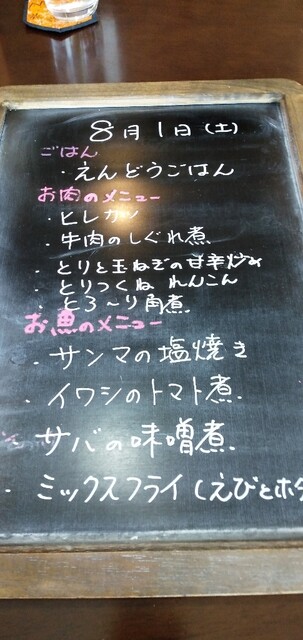 8月1日(土)
ごはん
・えんどうごはん
お肉のメニュー
・ヒレカツ
・牛肉のしぐれ煮.
・とりと玉ねぎの甘辛炒め
・とりつくね れんこん
・とろ〜り角煮.
お魚のメニュー
・サンマの塩焼き
・イワシのトマト煮.
サバの味噌煮.
・ミックスフライ(えびとホタ